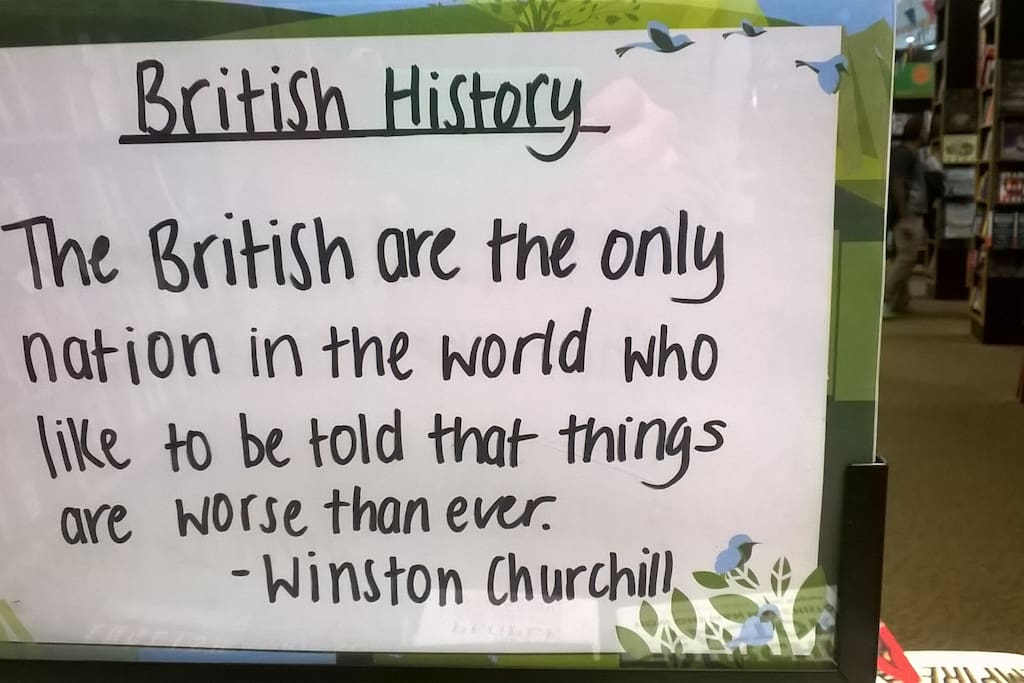 British History
The British are the only
nation in the world who
like to be told that things
are worse than ever.
- Winston Churchill